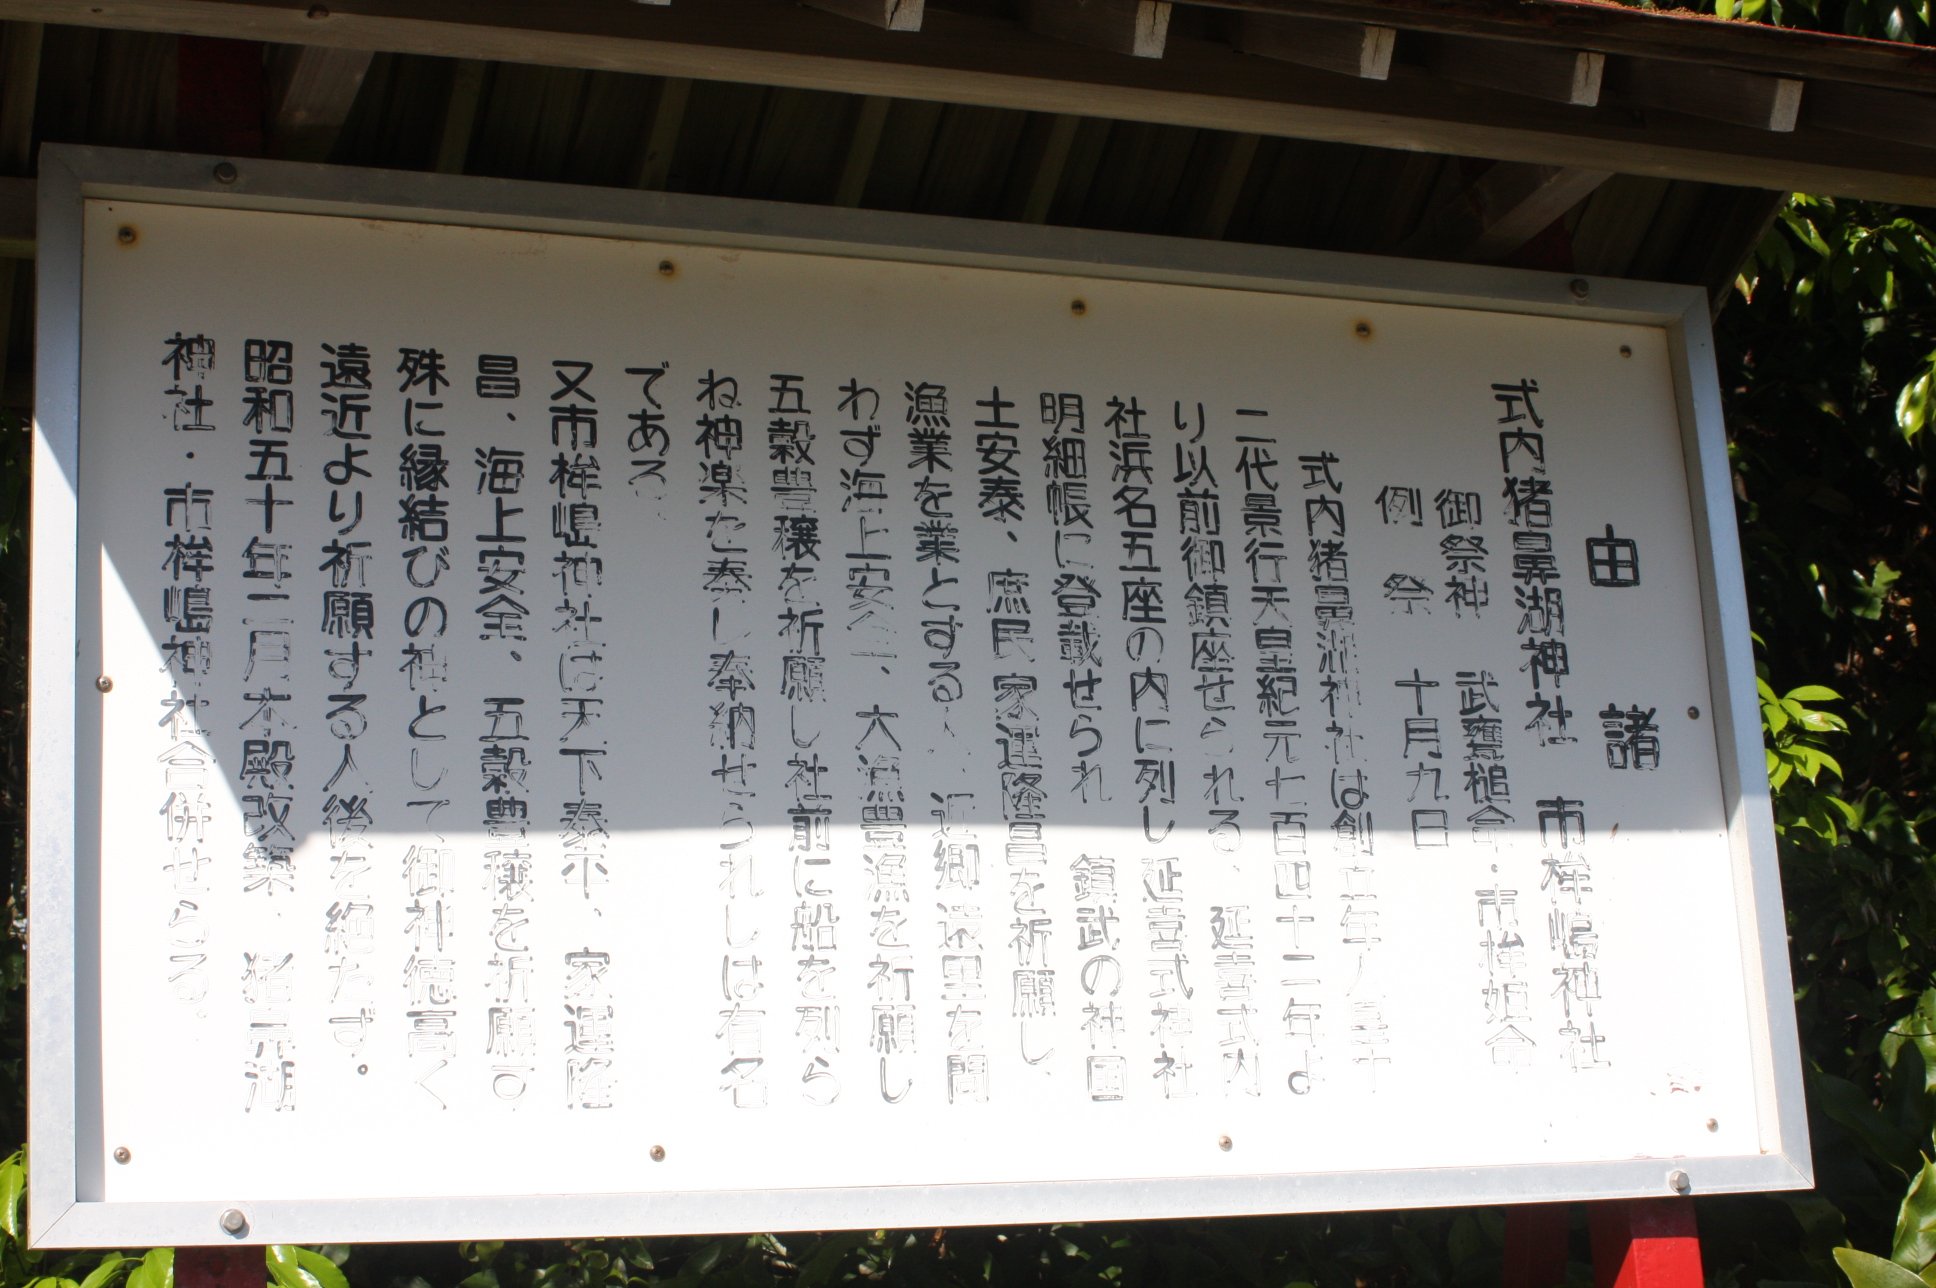 由諸
式内猪鼻湖神社 市杵嶋神社
御祭神 武甕槌命・市杵姫命
例祭 十月九日
式内猪鼻湖神社は創立年人皇十
二代景行天皇紀元七百四十二年よ
り以前御鎮座せられる、延喜式内
社浜名五座の内に列し延喜式神社
明細帳に登載せられ 鎮武の神国
土安泰、庶民家運隆昌を祈願し
漁業を業とする人、近郷遠里を問
わず海上安全、大漁豊漁を祈願し
五穀豊穣を祈願し社前に船を列ら
ね神楽を奏し奉納せられしは有名
である。
又市杵嶋神社は天下泰平、家運隆
昌、海上安全、五穀豊穣を祈願す
殊に縁結びの神として御神徳高く
遠近より祈願する人後を絶たず。
昭和五十年二月本殿改築、猪鼻湖
神社・市杵嶋神社合併せらる。